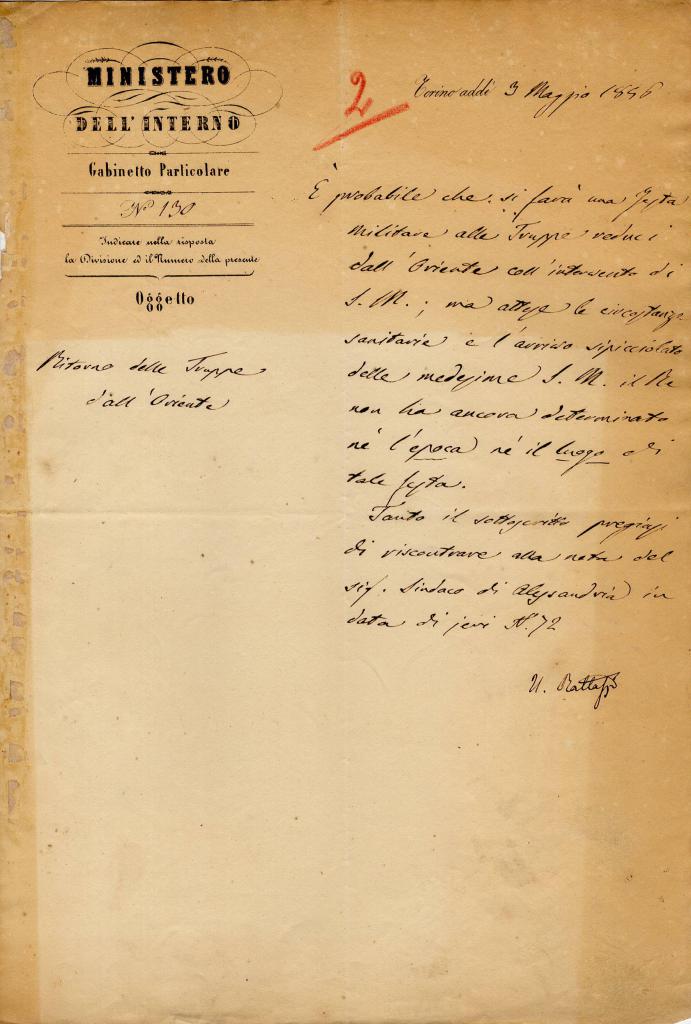 MINISTERO
DELL'INTERNO
Gabinetto Particolare
N° 130
Indicare nella risposta
la Divisione ed il Numero della presente
Oggetto
Ritorno delle Truppe
dall'Oriente
2
Torino addì 3 Maggio 1856
È probabile che si farà una festa
militare alle Truppe reduci
dall'Oriente coll'intervento di
S. M.; ma attese le circostanze
sanitarie e l'arrivo
delle medesime S. M. il Re
non ha ancora determinato
nè l'epoca nè il luogo di
tale festa.
Tanto il sottoscritto pregiasi
di riscontrare alla nota del
sig. Sindaco di Alessandria in
data di jeri N. 72
U. Rattazzi